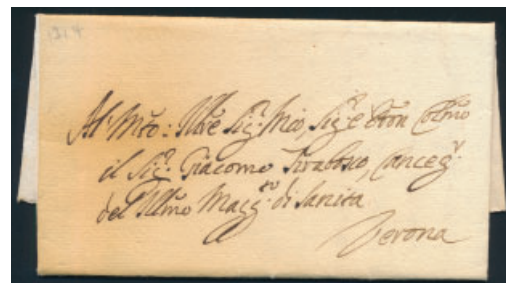 Al Mto: Illre Sigr. mio, Sigr. e Pron Colmo
il Sigr. Giacomo Tirabosco, Cancegr.
del Illmo Magg.to di Sanita
Verona